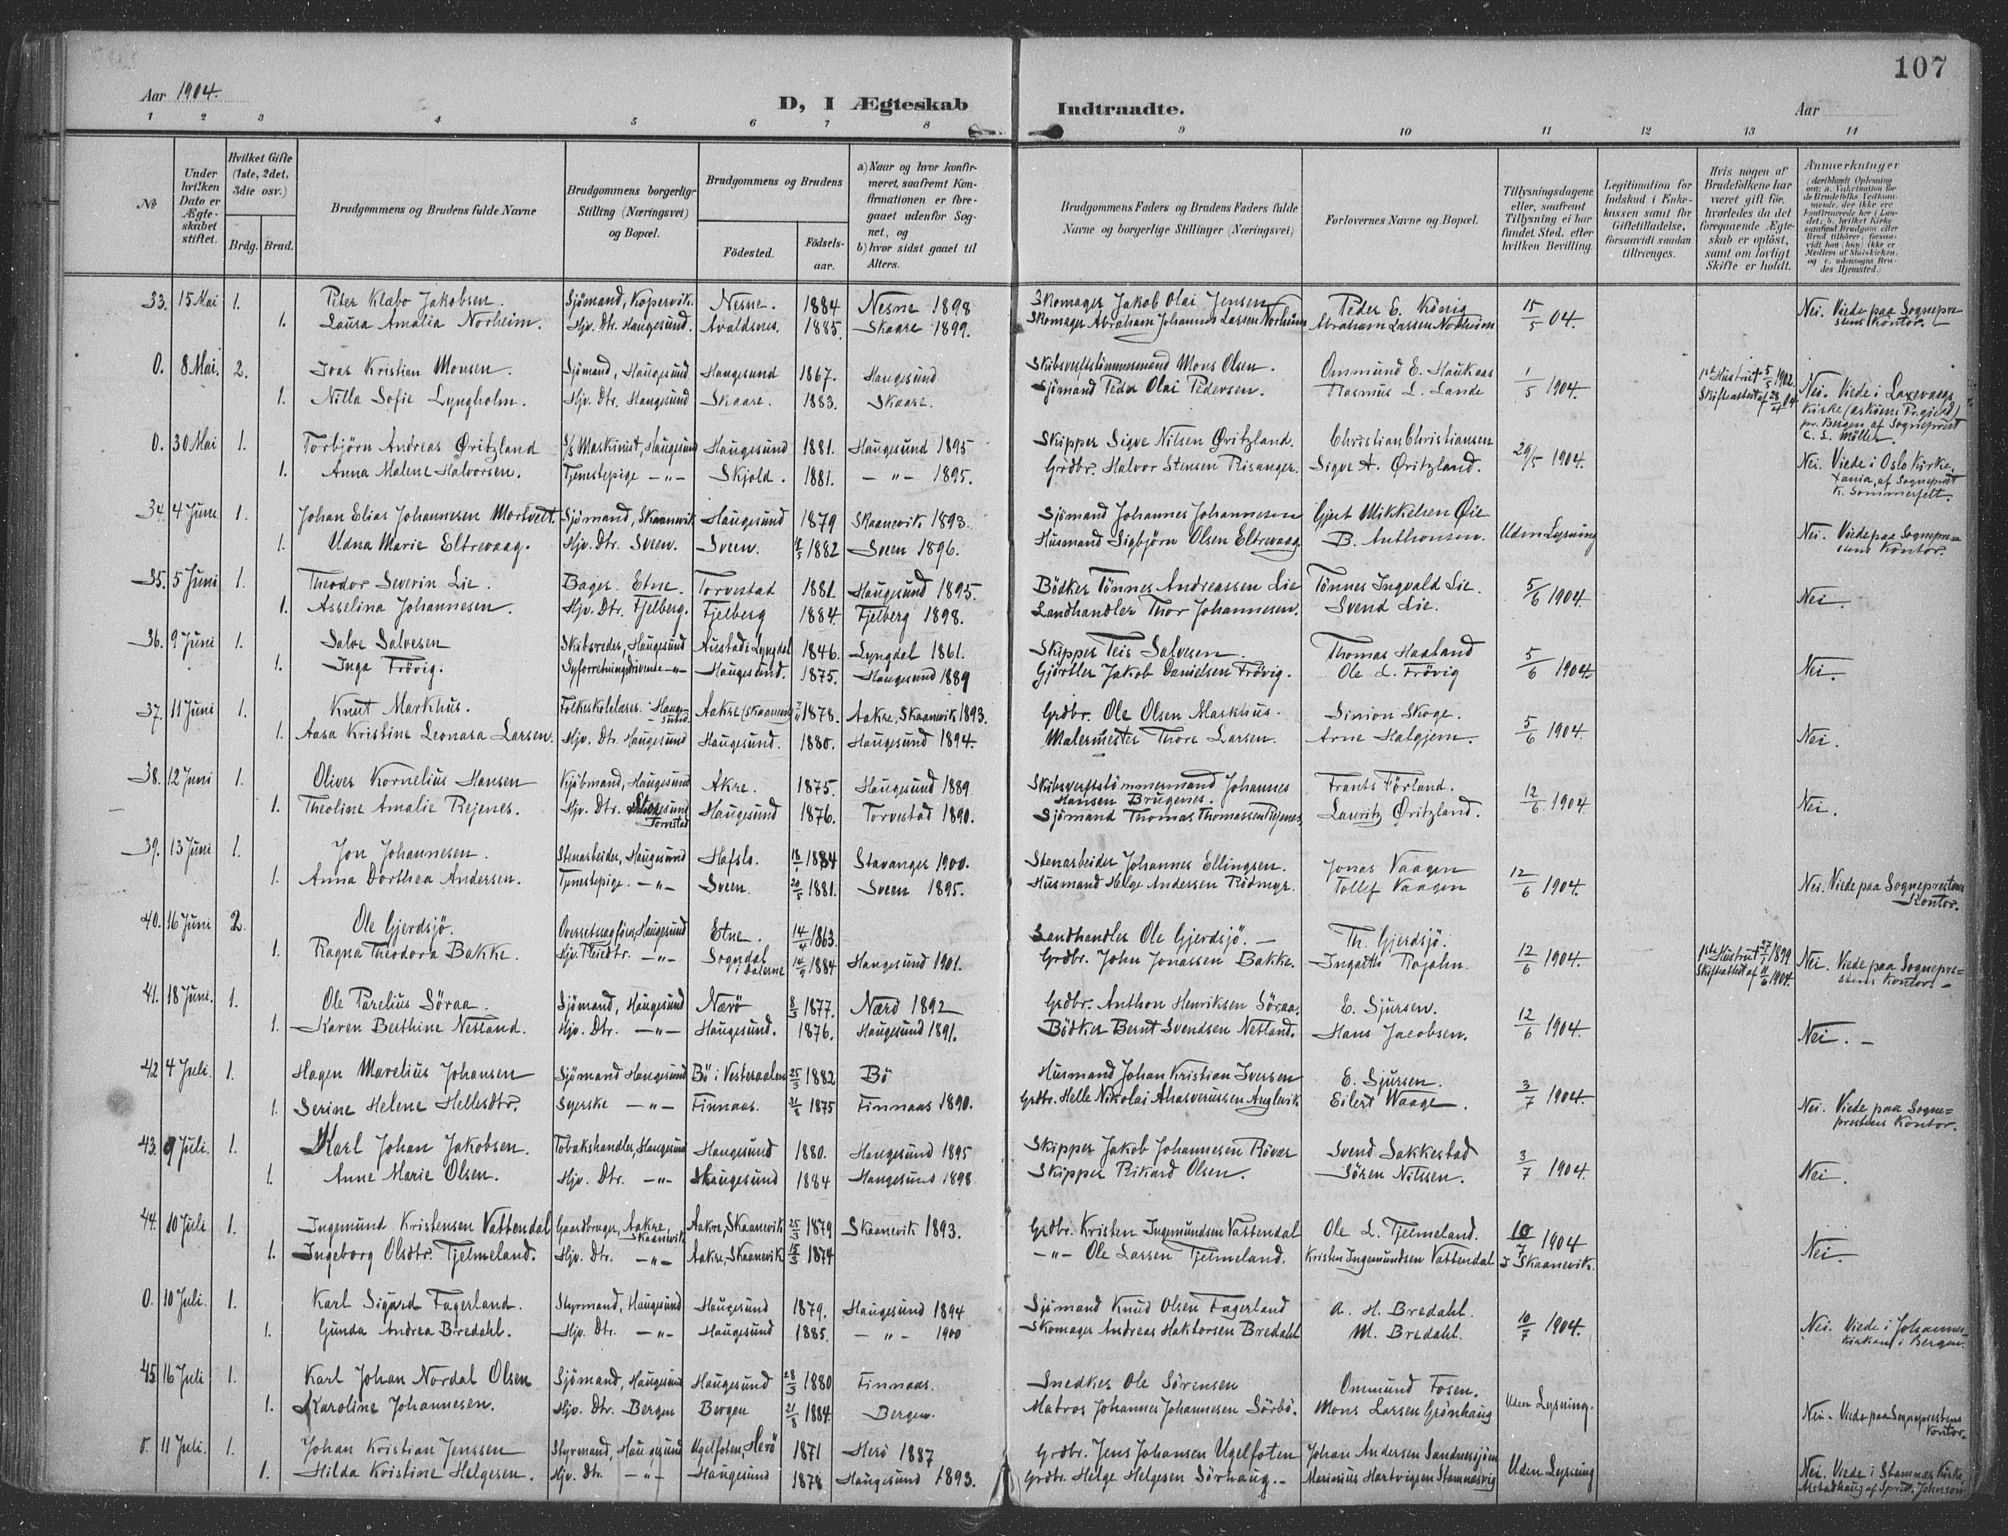 107
Aar 1904.
D, I Ægteskab Indtraadte.
Aar
1 2 3 4 5 6 7 8 9 10 11 12 13 14
No
Under hvilken Dato er Ægteskabet stiftet.
Hvilket Gifte (1ste, 2det, 3die osv.)
Brdg. Brud.
Brudgommens og Brudens fulde Navne
Brudgommens borgerlige Stilling (Næringsvei) og Bopæl.
Brudgommens og Brudens
Födested.
Födsels-aar.
a) Naar og hvor konfirmeret, saafremt Konfirmationen er foregaaet udenfor Sognet, og
b) hvor sidst gaaet til Alters.
Brudgommens Faders og Brudens Faders fulde Navne og borgerlige Stillinger (Næringsvei)
Forlovernes Navne og Bopæl.
Tillysningsdagene eller, saafremt Tillysning ei har fundet Sted, efter hvilken Bevilling.
Legitimation for Indskud i Enkekassen samt for Giftetilladelse, forsaavidt saadan tiltrænges.
Hvis nogen af Brudefolkene har været gift før, hvorledes da det foregaaende Ægteskab er oplöst, samt om lovligt Skifte er holdt.
Anmærkninger
33. 15 Mai 1. Peter Klabo Jakobsen. Sjömand, Kopervik. Nesne. 1884 Nesne 1898 Skomager Jakob Olai Jensen Peder E. König 15/5 04. Nei. Viede paa Sogneprestens Kontor.
1. Laura Amalia Norheim. Hjv. Dtr. Haugesund. Avaldsnes. 1885. Skaare 1899. Skomager Abraham Johannes Larsen Norheim Abraham Larsen Norheim
0. 8 Mai. 2. Joas Kristian Monsen. Sjömand, Haugesund Haugesund 1867. Haugesund Skibsverftstömmermand Mons Olsen. Ommund E. Haukaas 1/5 1904. 1ste Hustru † 5/5 1902. Skifteattest af 23/4 04
1. Nilla Sofie Lyngholm. Hjv. Dtr. Haugesund Skaare. 1883. Skaare. Sjömand Peder Olai Pedersen. Rasmus L. Lande Nei. Viede i Laxevaags Kirke (Askøens Prgjeld) pr. Bergen af Sogneprest C. L. Möller.
0. 30 Mai 1. Torbjörn Andreas Øritzland S/S Maskinist, Haugesund Haugesund 1881. Haugesund 1895 Skipper Sigve Nilsen Øritzland. Christian Christiansen 29/5 1904.
1. Anna Malene Halvorsen. Tjenestepige -"- Skjold. 1881. -"- 1895. Grdbr. Halvor Stensen Risanger. Sigve A. Øritzland. Nei. Viede i Oslo Kirke, Xania, af Sogneprest K. Sommerfelt.
34. 4 Juni 1. Johan Elias Johannesen Mortveit. Sjömand, Skaanevik Haugesund 1879 Skaanevik 1893. Sjömand Johannes Johannesen Gjert Mikkelsen Øie Uden Lysning Nei. Viede paa Sogneprestens Kontor.
1. Udna Marie Eltrevaag. Hjv. Dtr. Sveen. Sveen. 1882 Sveen 1896. Husmand Sigbjörn Olsen Eltrevaag B. Anthonsen.
35. 5 Juni 1. Theodor Severin Lie. Bager. Etne. Torvestad 1881. Haugesund 1895. Bödker Tönnes Andreassen Lie Tönnes Ingvald Lie. 5/6 1904. Nei.
1. Asselina Johannesen. Hjv. Dtr. Fjelberg. Fjelberg 1884. Fjelberg 1898. Landhandler Thor Johannesen. Svend Lie.
36. 9 Juni 1. Salve Salvesen Skibsreder, Haugesund Austad i Lyngdal 1846. Lyngdal 1861. Skipper Teis Salvesen. Thomas Haaland 5/6 1904. Nei.
1. Inga Frövig. Syforretningdrivende -"- Haugesund. 1875. Haugesund 1889 Gjörtler Jakob Danielsen Frövig. Ole L. Frövig
37. 11 Juni 1. Knut Markhus. Folkeskolelærer. Haugesund Aakre (Skaanevik) 1878. Aakre, Skaanevik 1893. Grdbr. Ole Olsen Markhus. Simon Skoge. 5/6 1904. Nei.
1. Aasa Kristine Leonara Larsen. Hjv. Dtr. Haugesund Haugesund. 1880. Haugesund 1894. Malermester Thore Larsen. Arne Halgjem.
38. 12 Juni 1. Oliver Kornelius Hansen Kjöbmand, Haugesund Akre. 1875. Haugesund 1889. Skibsverftstömmermand Johannes Hansen Brugenes. Frants Förland. 12/6 1904 Nei.
1. Theoline Amalie Rejenes. Hjv. Dtr. Torvestad Haugesund 1876. Torvestad 1890. Sjömand Thomas Thomassen Rejenes. Lauritz Øritzland.
39. 13 Juni 1. Jon Johannesen. Stenarbeider, Haugesund Hafslo. 18/1 1884 Stavanger 1900. Stenarbeider Johannes Ellingsen. Jonas Vaagen 12/6 1904.
1. Anna Dorthea Andersen. Tjenestepige. -"- Sveen. 20/5 1881. Sveen 1895. Husmand Helge Andersen Rödmyr. Tollef Vaagen Nei. Viede paa Sogneprestens Kontor.
40. 16 Juni 2. Ole Gjerdsjö. Overretssagförer, Haugesund Etne. 14/4 1863. Landhandler Ole Gjerdsjö. - Th. Gjerdsjö. 12/6 1904. 1ste Hustru † 27/7 1899. Skifteattest af 11/6 1904.
1. Ragna Theodora Bakke. Hjv. Pleiedtr. -"- Sogndal i Dalerne 14/9 1884 Haugesund 1901. Grdbr. John Jonassen Bakke. Ingarth Rojahn. Nei. Viede paa Sogneprestens Kontor. -
41. 18 Juni. 1. Ole Parelius Söraa. Sjömand, Haugesund Nærö 8/3 1877. Nærö 1892 Grdbr. Anthon Henriksen Söraa. E. Sjursen. 12/6 1904. Nei. -
1. Karen Berthine Netland. Hjv. Dtr. -"- Haugesund. 1876. Haugesund 1891. Bödker Bernt Svendsen Netland. Hans Jacobsen.
42 4 Juli. 1. Hagen Marelius Johansen Sjömand Haugesund Bö i Vesteraalen 25/3 1882 Bö Husmand Johan Kristian Iversen E. Sjursen. 3/7 1904.
1. Serine Helene Hellesdtr. Syerske -"- Finnaas. 21/8 1875 Finnaas 1890. Grdbr. Helle Nikolai Ahasverussen Anglevik Eilert Waage. Nei. Viede paa Sogneprestens Kontor.
43. 9 Juli. 1. Karl Johan Jakobsen. Tobakshandler, Haugesund Haugesund 1880. Haugesund 1895 Skipper Jakob Johannesen Rövær Svend Sakkestad 3/7 1904. Nei.
1. Anne Marie Olsen. Hjv. Dtr. -"- Haugesund 1884 Haugesund 1898 Skipper Rikard Olsen. Sören Nilssen.
44. 10 Juli 1. Ingemund Kristensen Vattendal Gaardbruger, Aakre, Skaanevik Aakre, Skaanevik 25/3 1879 Skaanevik 1893. Grdbr. Kristen Ingemundsen Vattendal Ole L. Tjelmeland. 10/7 1904 Nei.
1. Ingeborg Olsdtr. Tjelmeland. Hjv. Dtr. -"- Aakre, Skaanevik 15/3 1874 -"- Ole Larsen Tjelmeland. Kristen Ingemundsen Vattendal I Skaanevik.
0. 10 Juli. 1. Karl Sigard Fagerland. Styrmand, Haugesund Haugesund 1879. Haugesund 1894 Sjömand Knud Olsen Fagerland A. H. Bredahl. 10/7 1904.
1. Gunda Andrea Bredahl. Hjv. Dtr. -"- Haugesund 1885. -"- 1900 Skomager Andreas Haktorsen Bredahl M. Bredahl. Nei. Viede i Johanneskirken i Bergen.
45 16 Juli 1. Karl Johan Nordal Olsen Sjömand, Haugesund Haugesund 28/3 1880 Finnaas. Snedker Ole Sörensen Ommund Fosen. Uden Lysning.
1. Karoline Johannesen. Hjv. Dtr. Bergen Bergen 21/8 1884. Bergen. Matros Johannes Johannesen Sörbö. Mons Larsen Grönhaug Nei. Viede paa Sogneprestens Kontor.
0. 11 Juli. 1. Johan Kristian Jenssen Styrmand, Haugesund Ugelfoten, Herö 1871 Herö 1887 Grdbr. Jens Johansen Ugelfoten Johan Andersen Sandnessjöen Uden Lysning
1. Hilda Kristine Helgesen. Hjv. Dtr. -"- Haugesund 1878 Haugesund 1893. Grdbr. Helge Helgesen Sörhaug. - Marinius Hartvigsen Stamnesvig Nei. Viede i Stamnes Kirke, Alstadhaug af Spr. Johnson